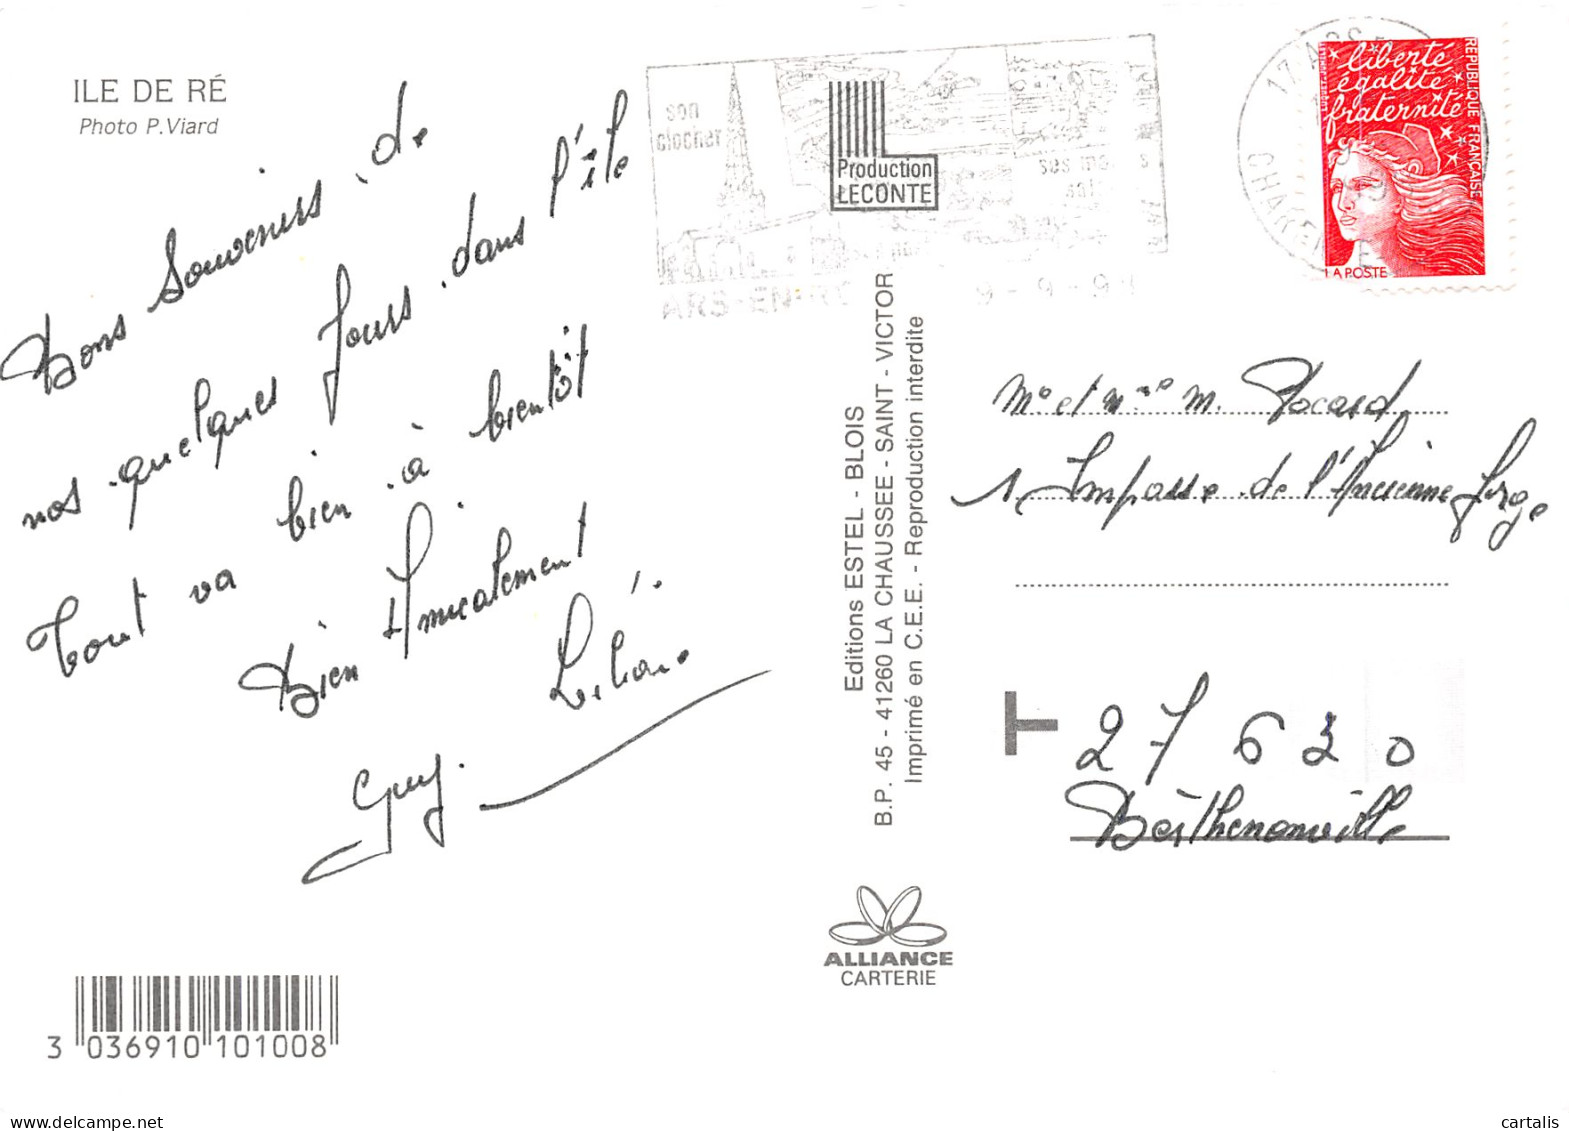 ILE DE RÉ
Photo P.Viard
Bons Souvenirs de
nos quelques jours dans l'île
Tout va bien à bientôt
Bien Amicalement
Liliane
Guy.
3 036910 101008
son
clocher
ses
ARS-EN-RE
9-9-9
Production
LECONTE
Editions ESTEL - BLOIS
B.P. 45 - 41260 LA CHAUSSEE - SAINT - VICTOR
Imprimé en C.E.E. - Reproduction interdite
ALLIANCE
CARTERIE
17 ARS
liberté
égalité
fraternité
REPUBLIQUE FRANÇAISE
LA POSTE
Mr et Mme M. Rocard
1 Impasse de l'Ancienne forge
T 27 630
Berthenonville
cartalis